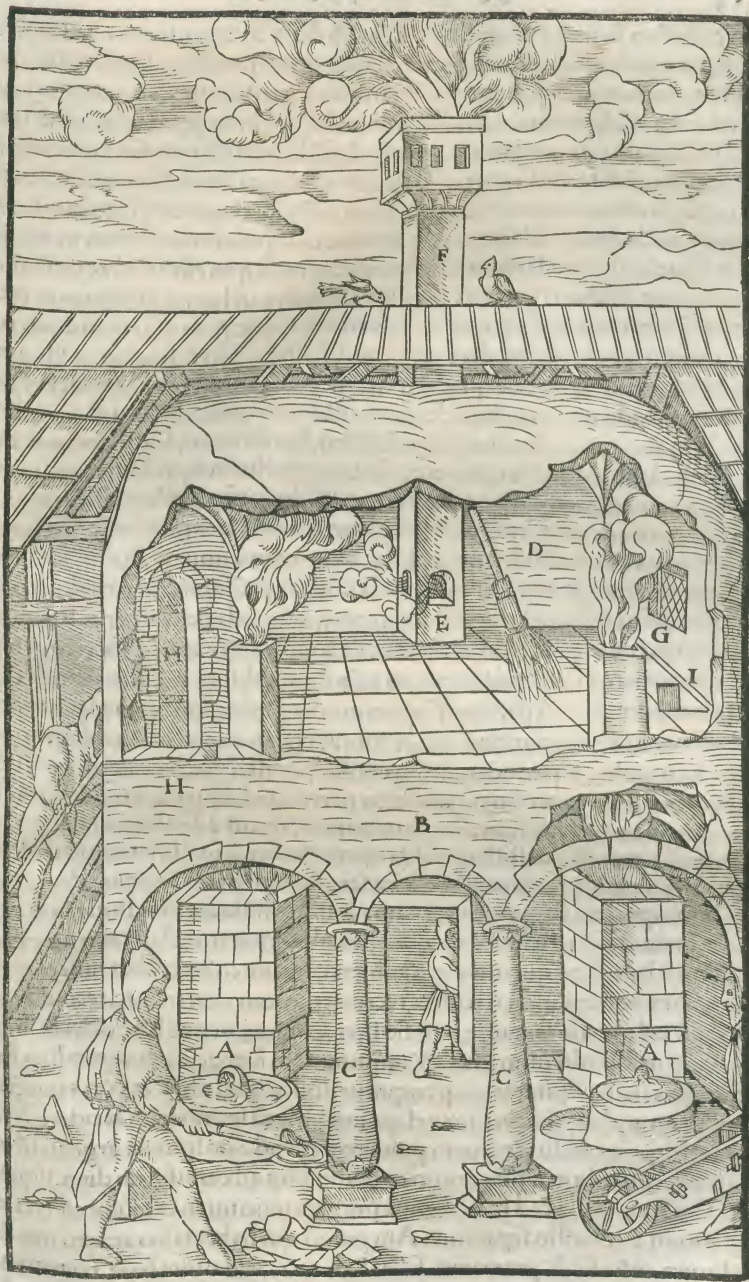 F
D
E
G
H
I
H
B
A
A
C
C